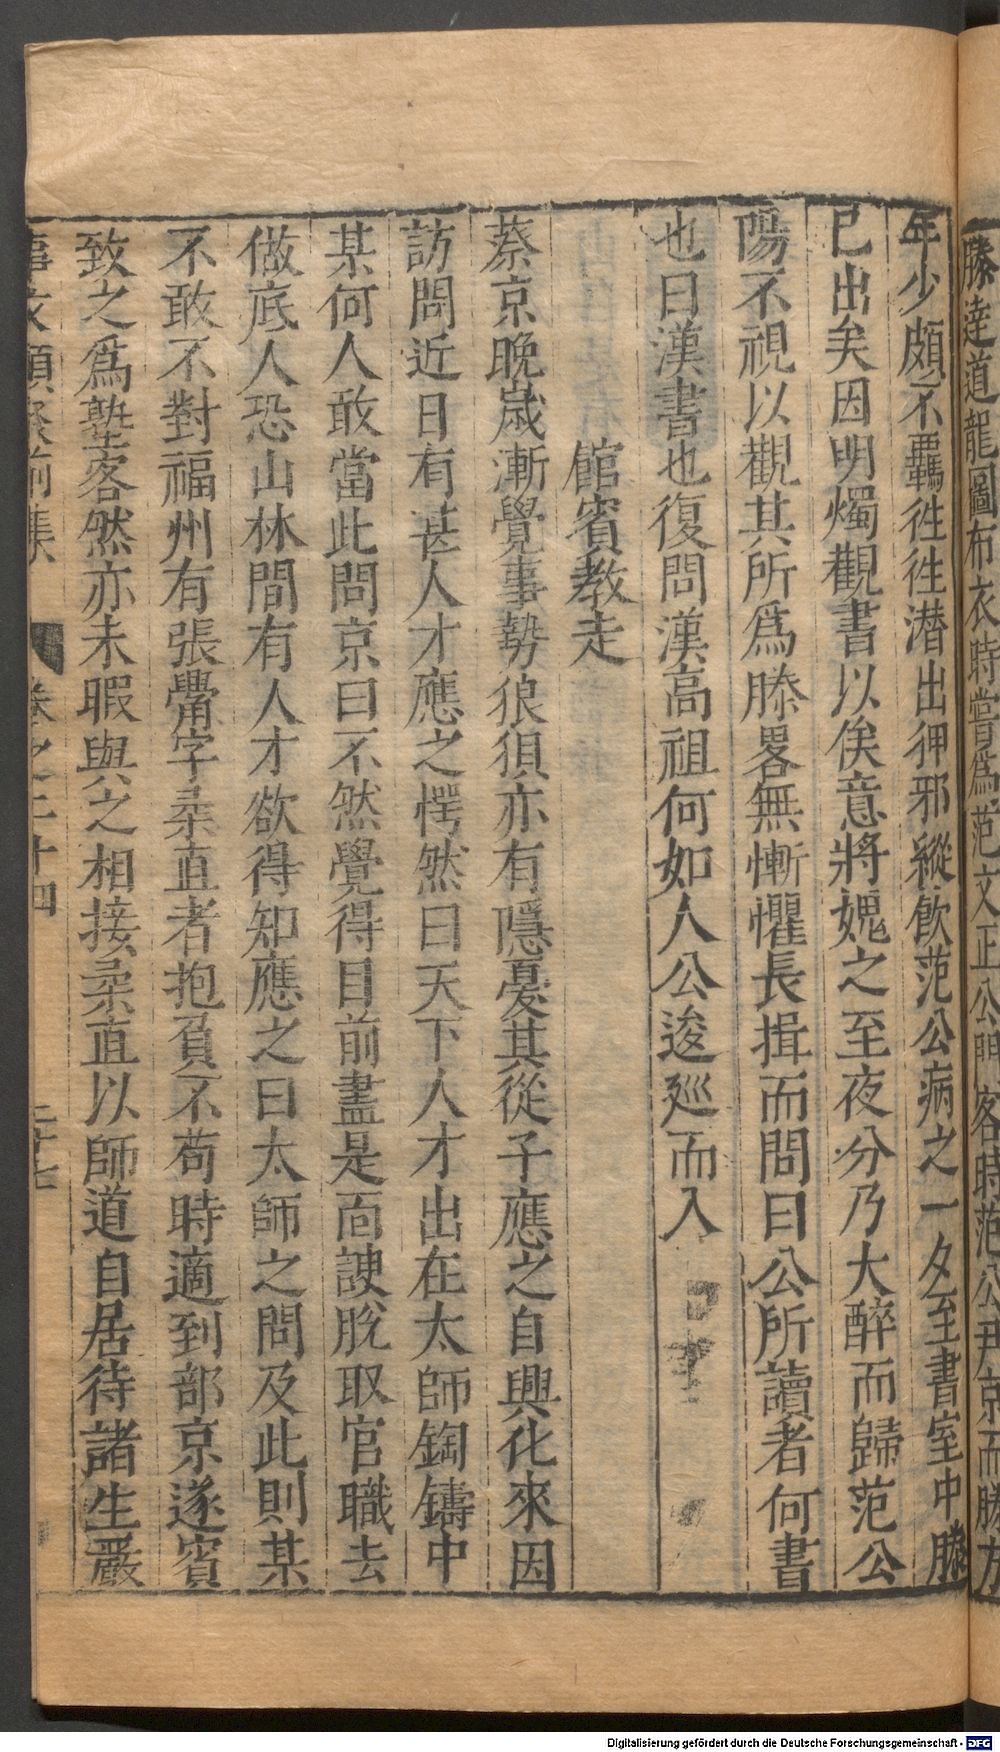 滕達道龍圖布衣時嘗爲范文正公門客時范公尹京而滕方
年少頗不羈徃徃潜出狎邪縱飲范公病之一夕至書室中滕
已出矣因明燭觀書以俟意將媿之至夜分乃大醉而歸范公
陽不視以觀其所爲滕畧無慚懼長揖而問曰公所讀者何書
也曰漢書也復問漢高祖何如人公逡廵而入
館賓教走
蔡京晚歲漸覺事勢狼狽亦有隱憂其從子應之自興化來因
訪問近日有甚人才應之愕然曰天下人才出在太師鎔鑄中
某何人敢當此問京曰不然覺得目前盡是面諛脫取官職去
做底人恐山林間有人才欲得知應之曰太師之問及此則某
不敢不對福州有張觷字柔直者抱負不苟時適到部京遂賓
致之爲塾客然亦未暇與之相接柔直以師道自居待諸生嚴
事文類聚前集 卷之二十四 二十七
Digitalisierung gefördert durch die Deutsche Forschungsgemeinschaft - DFG